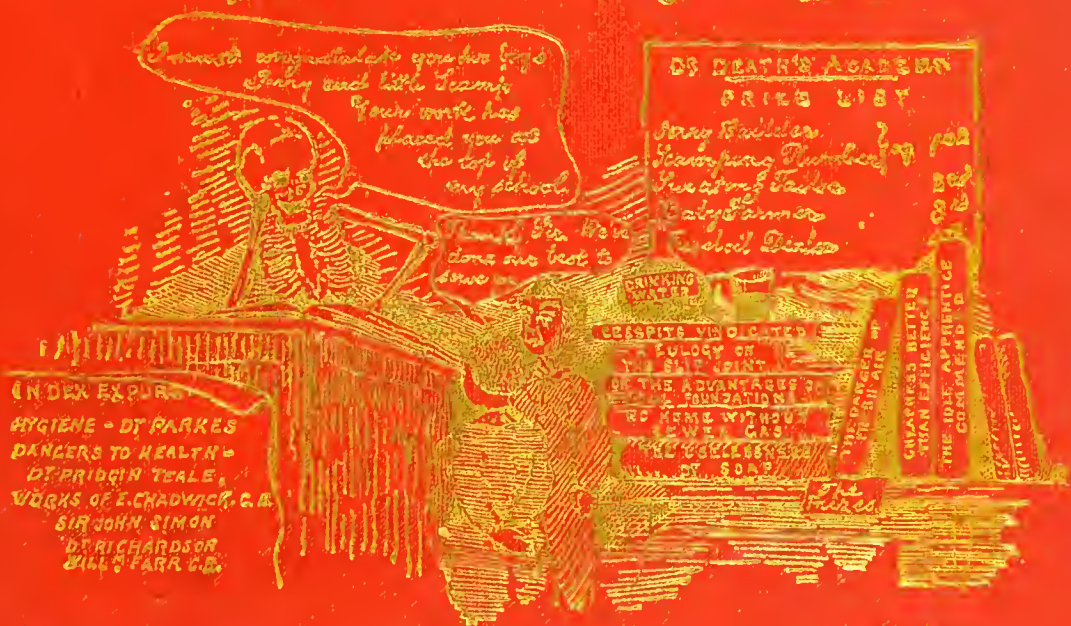 I must congratulate you two boys
Jerry and little Scamp
Your work has
placed you at
the top of
my school
DR DEATH'S ACADEMY
PRIZE LIST
Jerry Builder
Scamping Plumber
Sweating Tailor
Baby Farmer
Thanks Sir. We've
done our best to
serve
DRINKING
WATER
CESSPITS VINDICATED
EULOGY ON
THE SLIP JOINT
OF THE ADVANTAGES OF
FOUNDATIONS
NO HOME WITHOUT
SEWER GAS
THE USELESSNESS
OF SOAP
The
Prizes
THE DANGER OF
FRESH AIR
CHEAPNESS BETTER
THAN EFFICIENCY
THE IDLE APPRENTICE
COMMENDED
INDEX EXPURG
HYGIENE - DR PARKES
DANGERS TO HEALTH -
DR PRIDGIN TEALE,
WORKS OF E. CHADWICK, C.B.
SIR JOHN SIMON
DR RICHARDSON
WILLM FARR C.B.